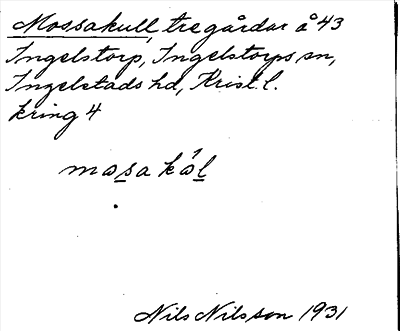 Mossakull, tre gårdar å 43
Ingelstorp, Ingelstorps sn,
Ingelstads hd, Krist. l.
kring 4
Nils Nilsson 1931